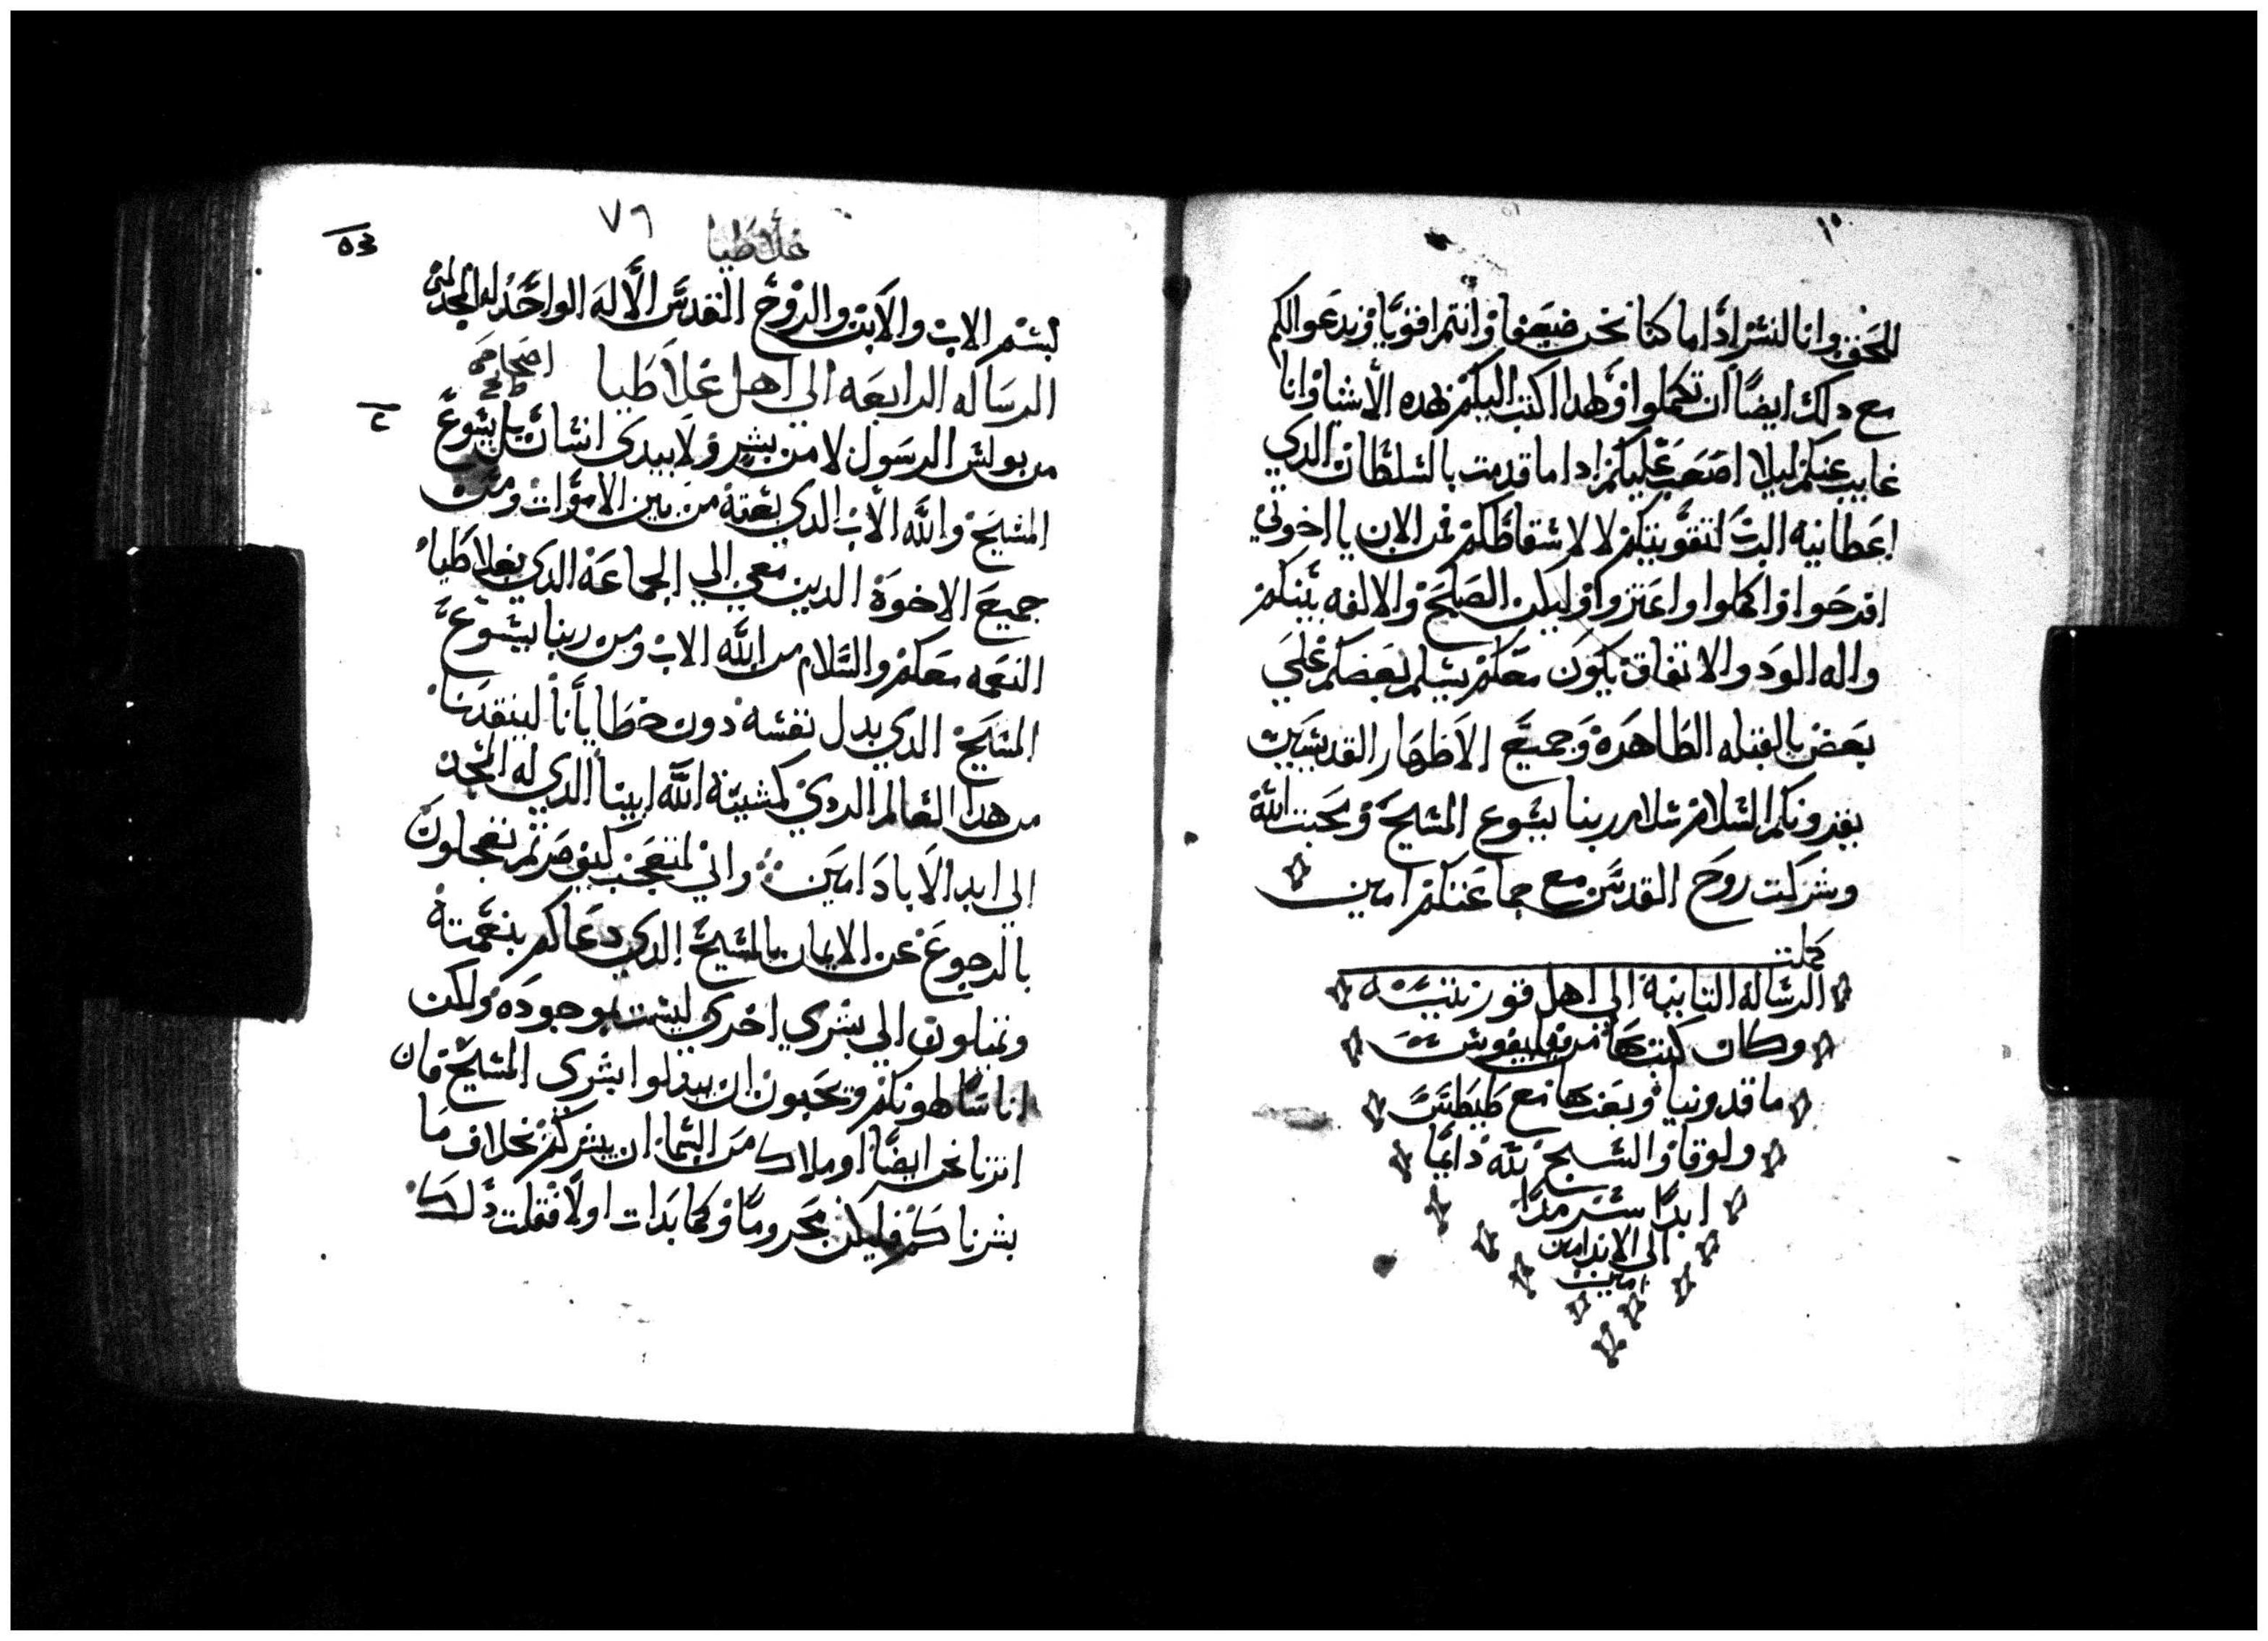 ١٠
للحق وانا لنسر اذا ما كنا نحن ضعفا وانتم اقويا ونريد عوا لكم
مع دلك ايضًا ان تكملوا ولهدا اكتب اليكم بهده الأشيا وانا
غايب عنكم ليلا اصعب عليكم ادا ما قدمت بالسلطان الدي
اعطانيه الرب لتقويتكم لا لاسقاطكم فمن الان يا اخوتي
افرحوا واكملوا واعتزوا وليكن الصلح والالفه بينكم
واله الود والاتفاق يكون معكم يسلم بعضكم علي
بعض بالقبله الطاهره وجميع الاطهار القديسين
يقرونكم السلام سلام ربنا يسوع المسيح ومحبت الله
وشركت روح القدس مع جماعتكم امين
كملت
الرسالة التانية الي اهل قورنتيه
وكان كتبها من فيليفوس
ماقدونيا وبعت بها مع طيطس
ولوقا والسبح لله دايمًا
ابدًا سرمدًا
الي الابد امين
امين
٧٦
غلاطيا
بسم الاب والابن والروح القدس الاله الواحد له المجد
الرساله الرابعه الي اهل غلاطيا
اصحاح
من بولس الرسول لا من بشر ولا بيدي انسان بل يسوع
المسيح والله الاب الدي بعته من بين الاموات ومن
جميع الاخوة الدين معي الي الجماعه الدي بغلاطيا
النعمه معكم والسلام من الله الاب ومن ربنا يسوع
المسيح الدي بدل نفسه دون خطايانا لينقدنا
من هدا العالم الردي كمشية الله ابينا الدي له المجد
الي ابد الاباد امين واني لمتعجب كيف صرتم تعجلون
بالرجوع عن الايمان بالمسيح الدي دعاكم بنعمته
وتميلون الي بشري اخري ليست بموجوده ولكن
اناسًا يحبون ان يبدلوا بشري المسيح فان
اننا نحن ايضًا او ملاك من السما ان يبشركم بخلاف ما
بشرناكم فليكن محرومًا وكما بدات اولًا فقلت دلك